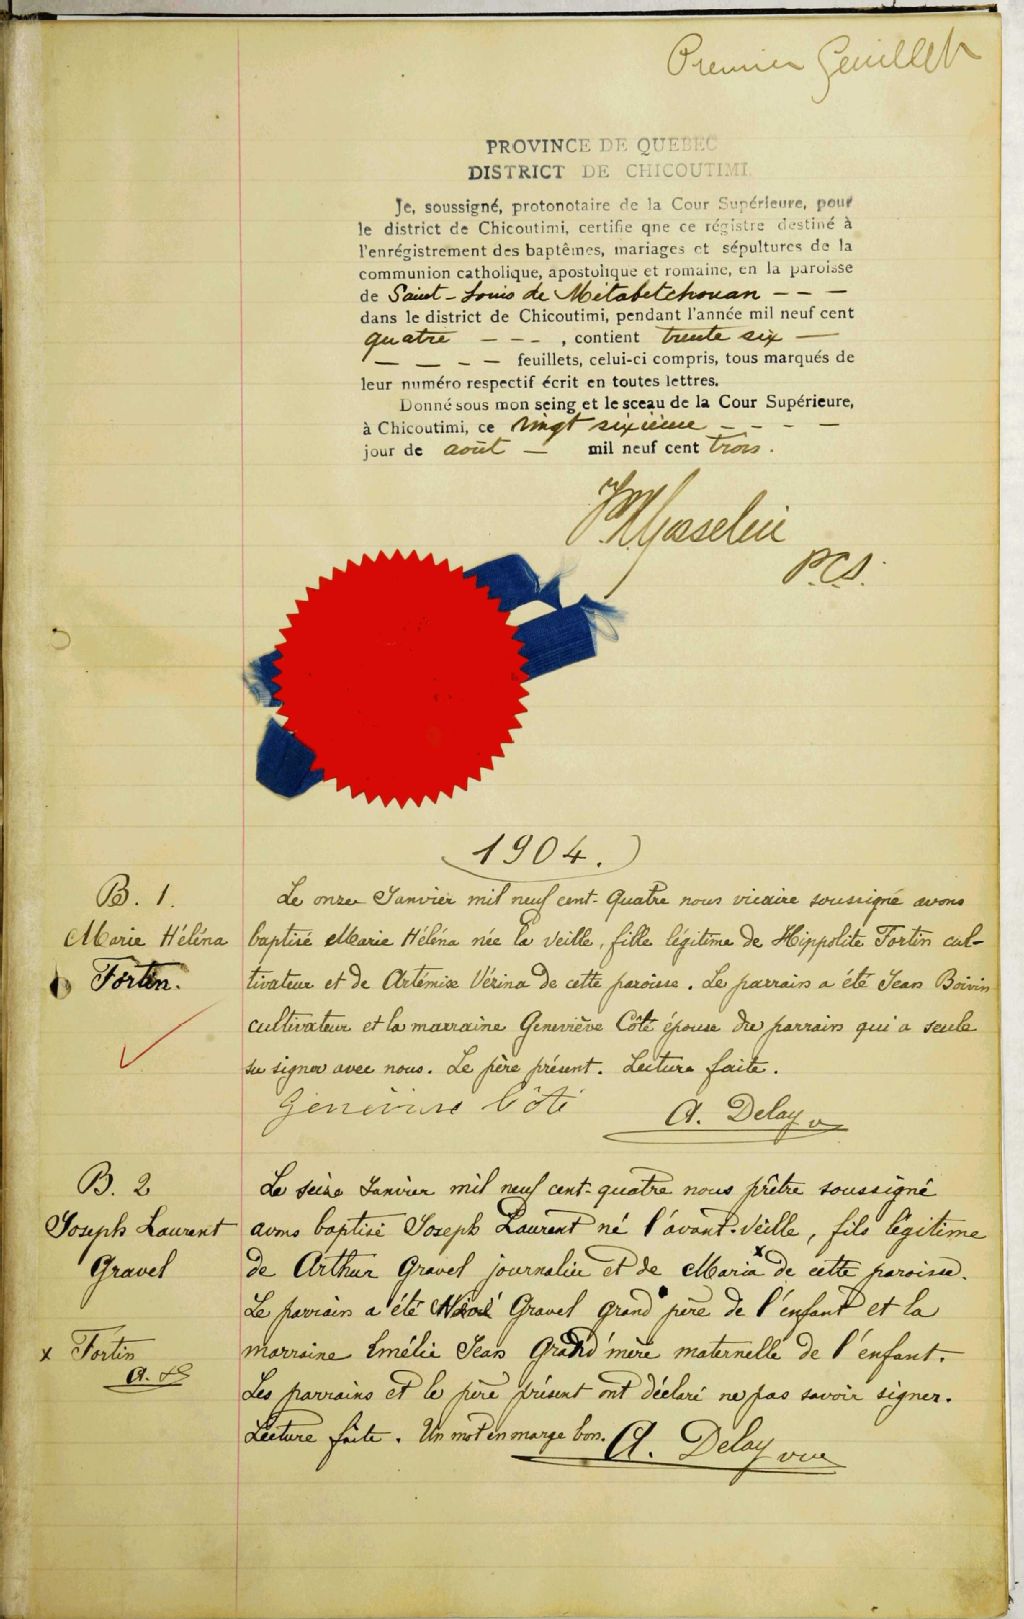 Premier feuillet
PROVINCE DE QUEBEC
DISTRICT DE CHICOUTIMI
Je, soussigné, protonotaire de la Cour Supérieure, pour
le district de Chicoutimi, certifie qne ce régistre destiné à
l'enrégistrement des baptêmes, mariages et sépultures de la
communion catholique, apostolique et romaine, en la paroisse
de Saint-Louis de Métabetchouan - - -
dans le district de Chicoutimi, pendant l'année mil neuf cent
quatre - - - , contient trente six -
- - - - feuillets, celui-ci compris, tous marqués de
leur numéro respectif écrit en toutes lettres.
Donné sous mon seing et le sceau de la Cour Supérieure,
à Chicoutimi, ce vingt sixième - - - -
jour de août - mil neuf cent trois.
P.C.S.
1904.
B. 1.
Marie Héléna
Fortin.
Le onze Janvier mil neuf cent-quatre nous vicaire soussigné avons
baptisé Marie Héléna née la veille, fille légitime de Hippolite Fortin cul-
tivateur et de Artémise Vézina de cette paroisse. Le parrain a été Jean Boivin
cultivateur et la marraine Geneviève Côté épouse du parrain qui a seule
su signer avec nous. Le père présent. Lecture faite.
Geneviève Côté A. Delay
B. 2
Joseph Laurent
Gravel
x Fortin
Le seize Janvier mil neuf cent-quatre nous prêtre soussigné
avons baptisé Joseph Laurent né l'avant-veille, fils légitime
de Arthur Gravel journalier et de Maria x de cette paroisse.
Le parrain a été Gravel grand père de l'enfant et la
marraine Emélie Jean Grand'mère maternelle de l'enfant.
Les parrains et le père présent ont déclaré ne pas savoir signer.
Lecture faite. Un mot en marge bon. A. Delay